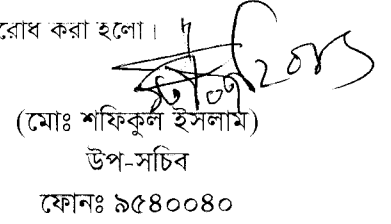 রোধ করা হলো।
(মোঃ শফিকুল ইসলাম)
উপ-সচিব
ফোনঃ ৯৫৪০০৪০